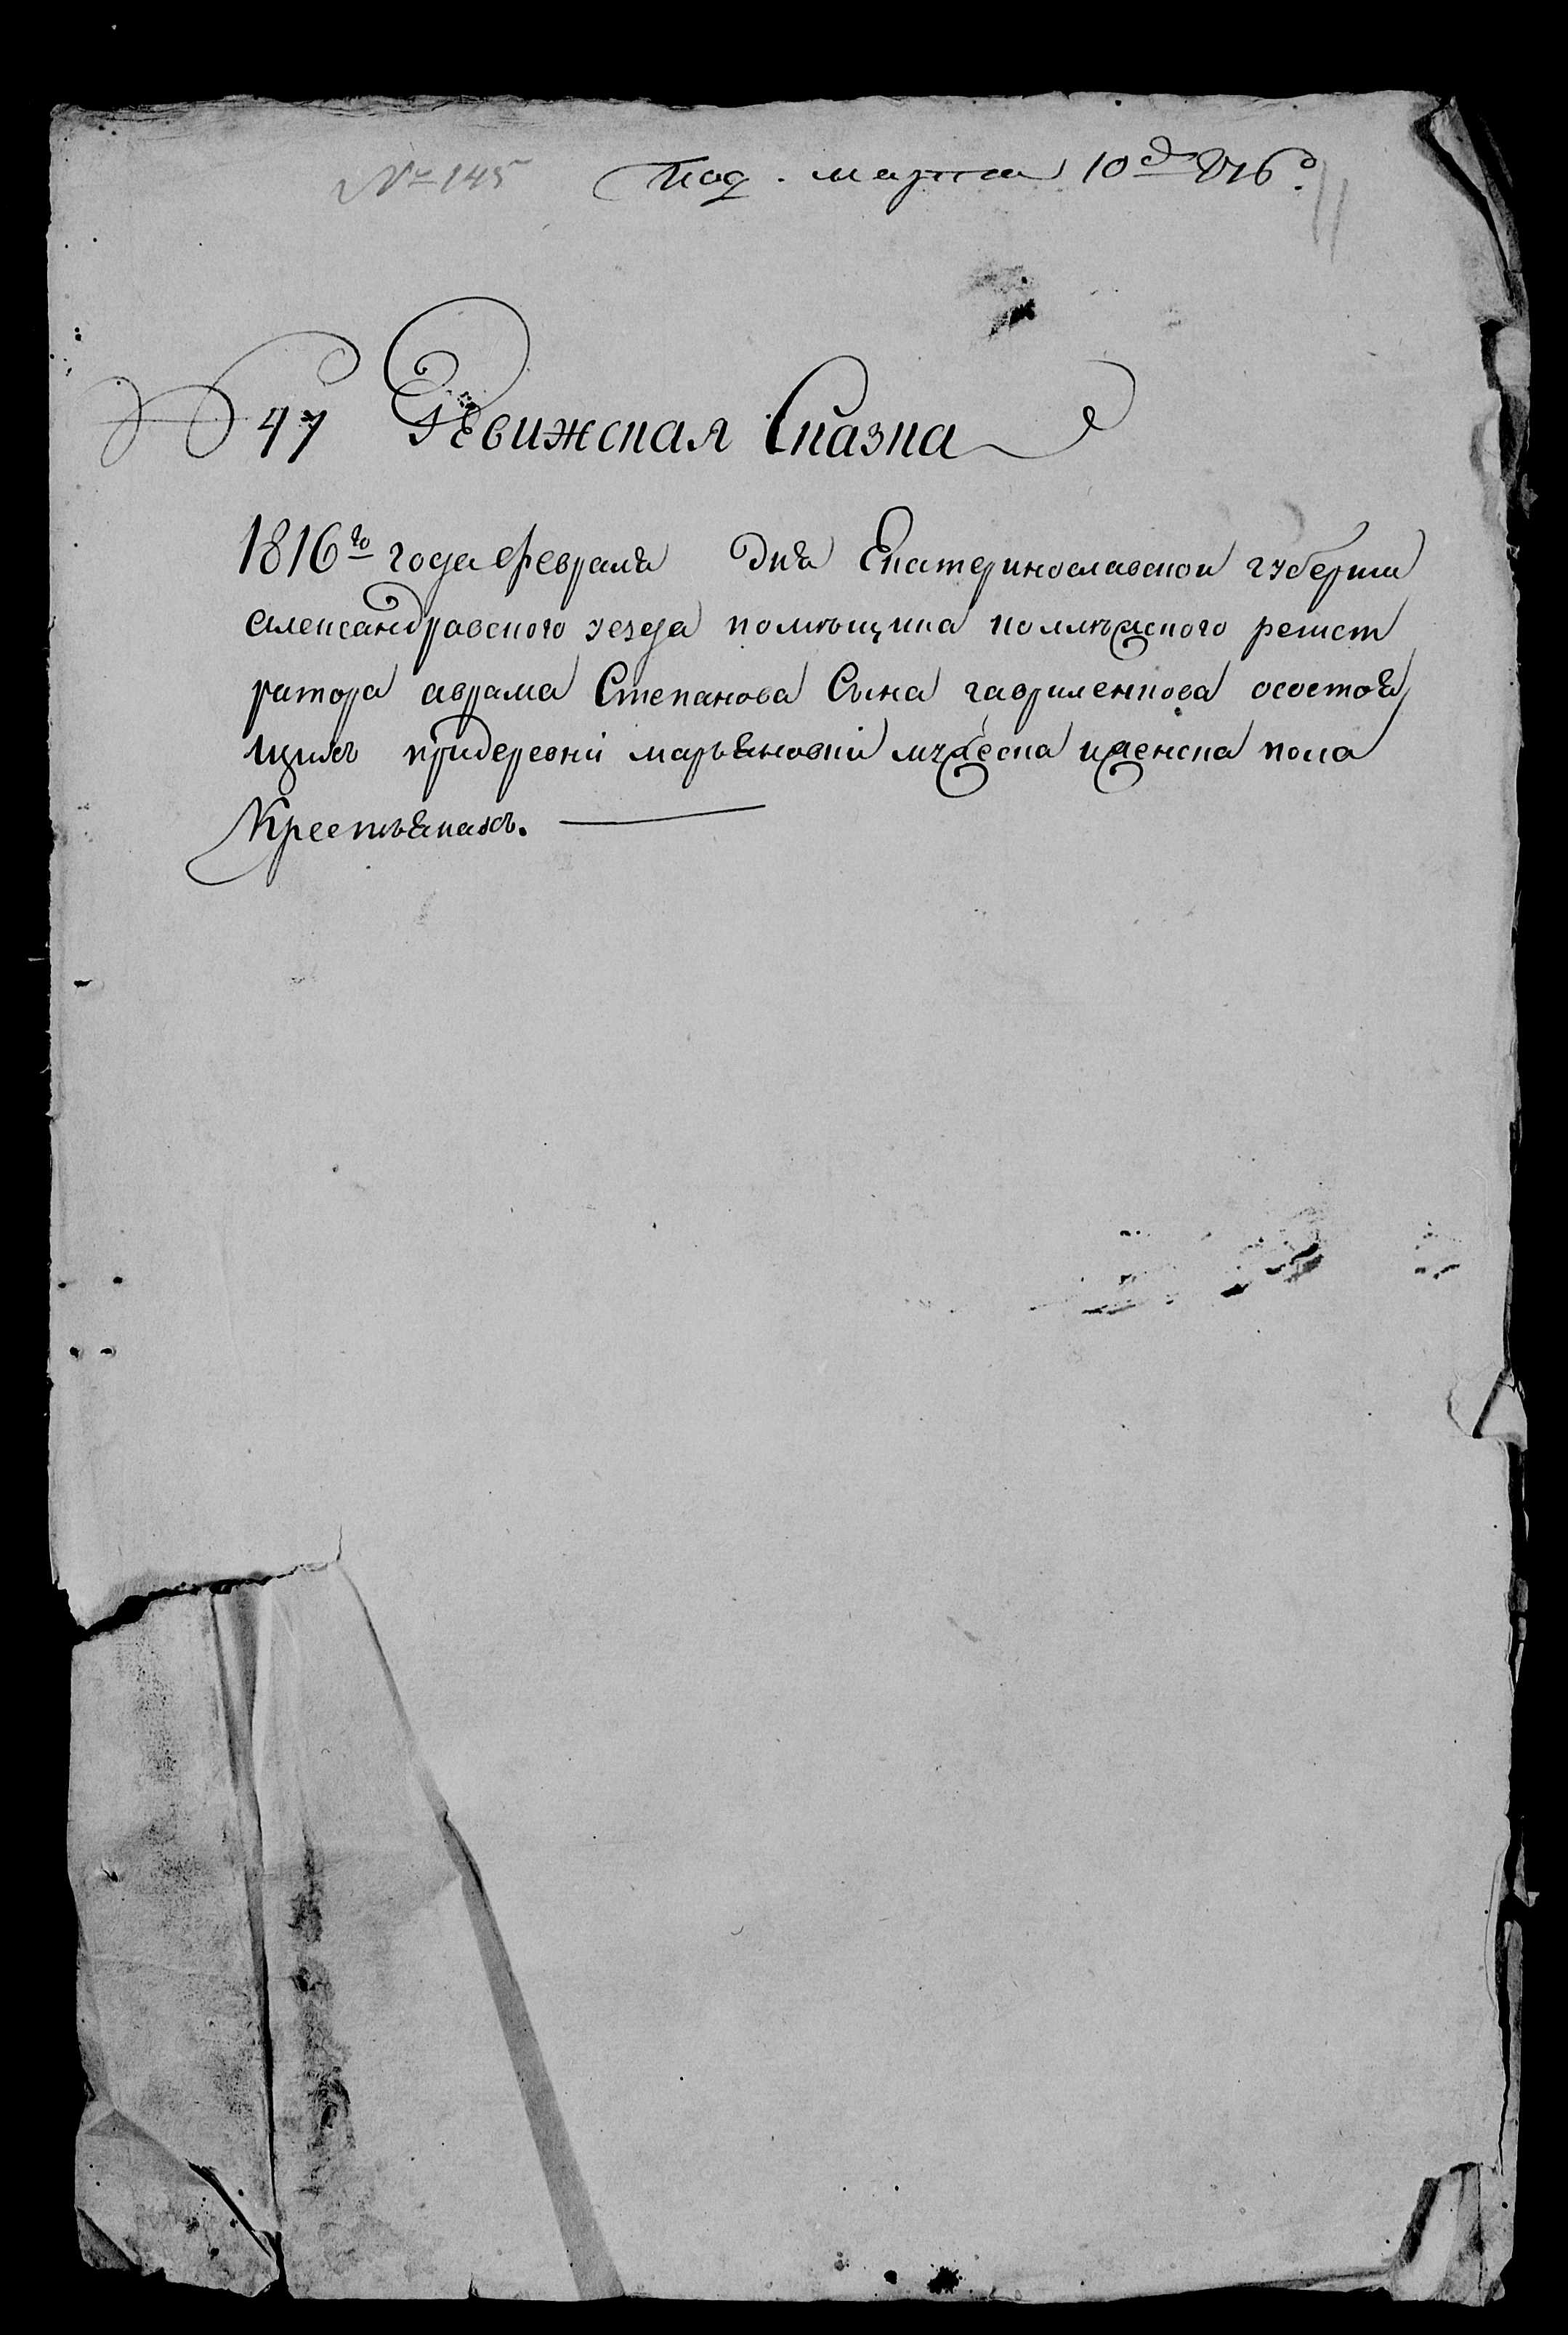 № 145 Под. марта 10д 816д
47 Ревижская Сказка
1816го года февраля дня Екатеринославской губернии
александравского уезда помѣщика колѣжского регист
ратора аврама Степанова Сына гавриленкова осостоя
щихъ придеревни марьяновки мужеска иженска пола
Крестьянахъ.